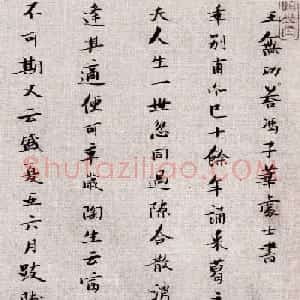 王無功答馮子華處士書
乖別甫爾已十餘年誦采葛
夫人生一世忽同過隙合散消
逢其適便可卒歲陶生云富
不可期又云盛夏五六月跂腳
Shufaziliao.com